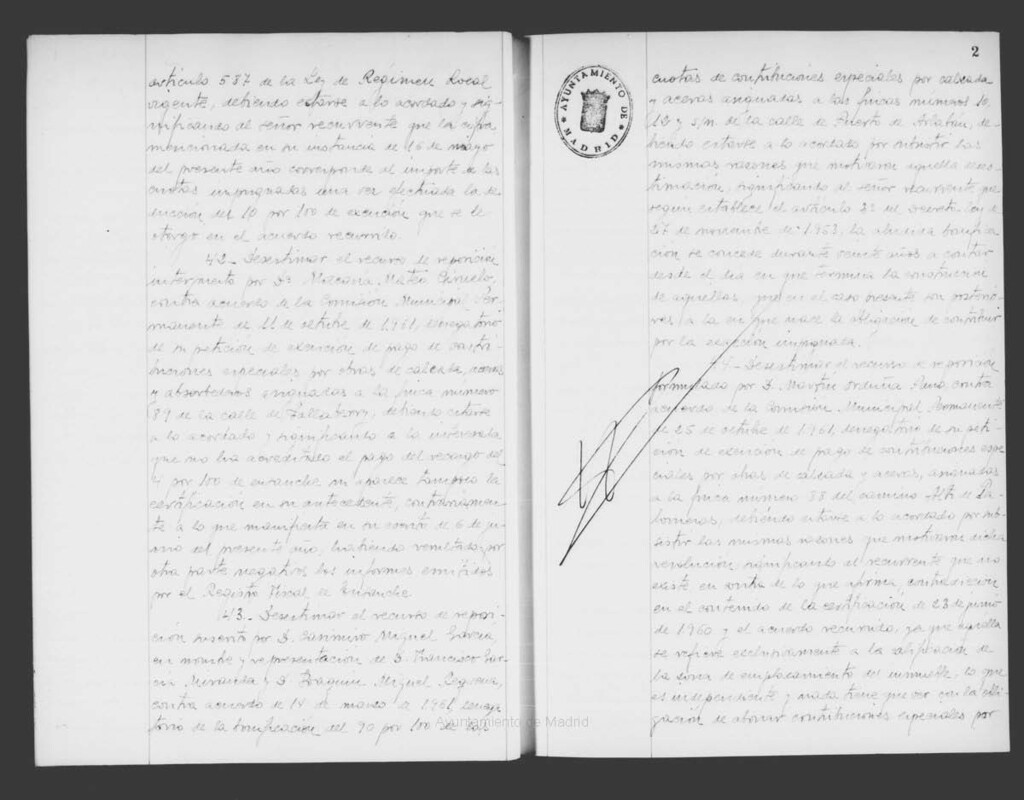 artículo 587 de la Ley de Régimen Local
vigente, debiendo estarse a lo acordado y sig-
nificando al señor recurrente que la cifra
mencionada en su instancia de 16 de mayo
del presente año corresponde al importe de las
cuotas impugnadas una vez efectuada la de-
ducción del 10 por 100 de exención que se le
otorgó en el acuerdo recurrido.
42.- Desestimar el recurso de reposición
interpuesto por Dª Macaria Mateo
contra acuerdo de la Comisión Municipal Per-
manente de 11 de octubre de 1961, denegatorio
de su petición de exención de pago de contri-
buciones especiales por obras de calzada, aceras
y absorbederos asignadas a la finca número
89 de la calle de Villaamil, debiendo estarse
a lo acordado y significando a la interesada
que no ha acreditado el pago del recargo del
4 por 100 de ensanche ni aparece tampoco la
certificación en su antecedente, contrariamen-
te a lo que manifiesta en su escrito de 6 de ju-
nio del presente año, habiendo resultado, por
otra parte negativos los informes emitidos
por el Registro Fiscal de Ensanche.
43.- Desestimar el recurso de reposi-
ción suscrito por D. Casimiro Miguel García
en nombre y representación de D. Francisco Gar-
cía Miranda y D. Joaquín Miguel
contra acuerdo de 14 de marzo de 1961 denega-
torio de la bonificación del 90 por 100 de las
Ayuntamiento de Madrid
2
AYUNTAMIENTO DE MADRID
cuotas de contribuciones especiales por calzada
y aceras asignadas a las fincas números 10,
12 y s/n de la calle de Puerto de Arlabán, de-
biendo estarse a lo acordado por subsistir las
mismas razones que motivaron aquella deses-
timación, significando al señor recurrente que
según establece el artículo 3º del Decreto-Ley de
27 de noviembre de 1953, la aludida bonifica-
ción se concede durante veinte años a contar
desde el día en que termina la construcción
de aquellas, que en el caso presente son posterio-
res a la en que nace la obligación de contribuir
por la exacción impugnada.
44.- Desestimar el recurso de reposición
formulado por D. Martín Orduña contra
acuerdo de la Comisión Municipal Permanente
de 25 de octubre de 1961, denegatorio de su peti-
ción de exención de pago de contribuciones espe-
ciales por obras de calzada y aceras, asignadas
a la finca número 33 del camino Alto de Pa-
lomeras, debiendo estarse a lo acordado por sub-
sistir las mismas razones que motivaron dicha
resolución significando al recurrente que no
existe en contra de lo que afirma, contradicción
en el contenido de la certificación de 23 de junio
de 1960 y el acuerdo recurrido, ya que aquella
se refiere exclusivamente a la calificación de
la zona de emplazamiento del inmueble, lo que
es independiente y nada tiene que ver con la obli-
gación de abonar contribuciones especiales por